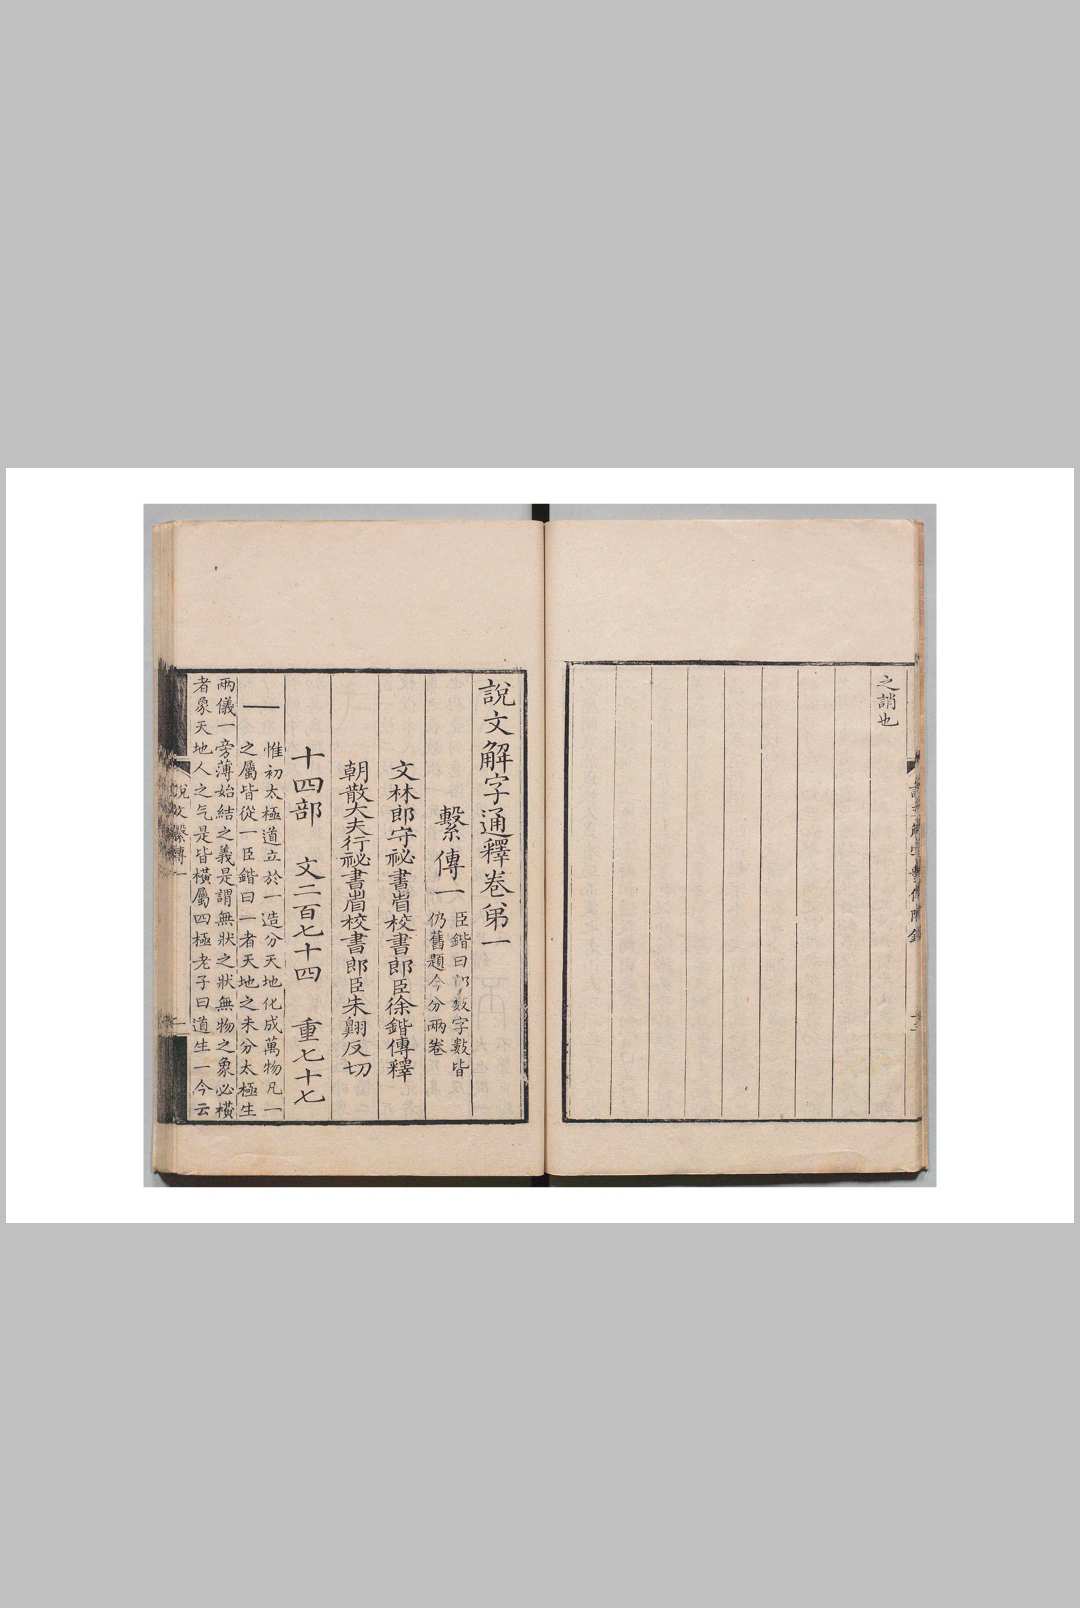 之誚也
說文解字通釋卷弟一
繫傳一
臣鍇曰部數字數皆
仍舊題今分兩卷
文林郎守祕書省校書郎臣徐鍇傳釋
朝散大夫行祕書省校書郎臣朱翺反切
十四部 文二百七十四 重七十七
一
惟初太極道立於一造分天地化成萬物凡一
之屬皆從一臣鍇曰一者天地之未分太極生
兩儀一旁薄始結之義是謂無狀之狀無物之象必橫
者象天地人之气是皆橫屬四極老子曰道生一今云
說文繫傳一